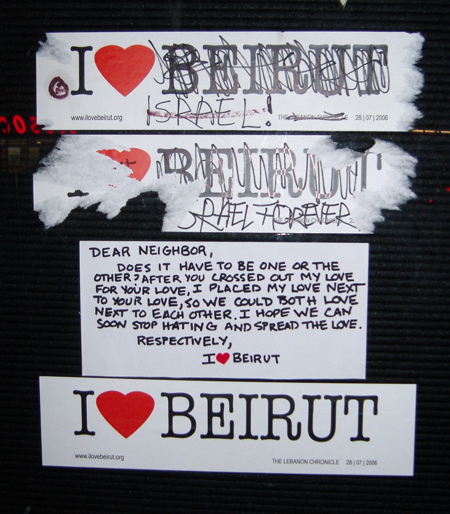 I ❤ BEIRUT
ISRAEL!
www.ilovebeirut.org
THE LEBANON CHRONICLE 28 | 07 | 2006
BEIRUT
ISRAEL FOREVER
DEAR NEIGHBOR,
DOES IT HAVE TO BE ONE OR THE
OTHER? AFTER YOU CROSSED OUT MY LOVE
FOR YOUR LOVE, I PLACED MY LOVE NEXT
TO YOUR LOVE, SO WE COULD BOTH LOVE
NEXT TO EACH OTHER. I HOPE WE CAN
SOON STOP HATING AND SPREAD THE LOVE.
RESPECTIVELY,
I ❤ BEIRUT
I ❤ BEIRUT
www.ilovebeirut.org
THE LEBANON CHRONICLE 28 | 07 | 2006